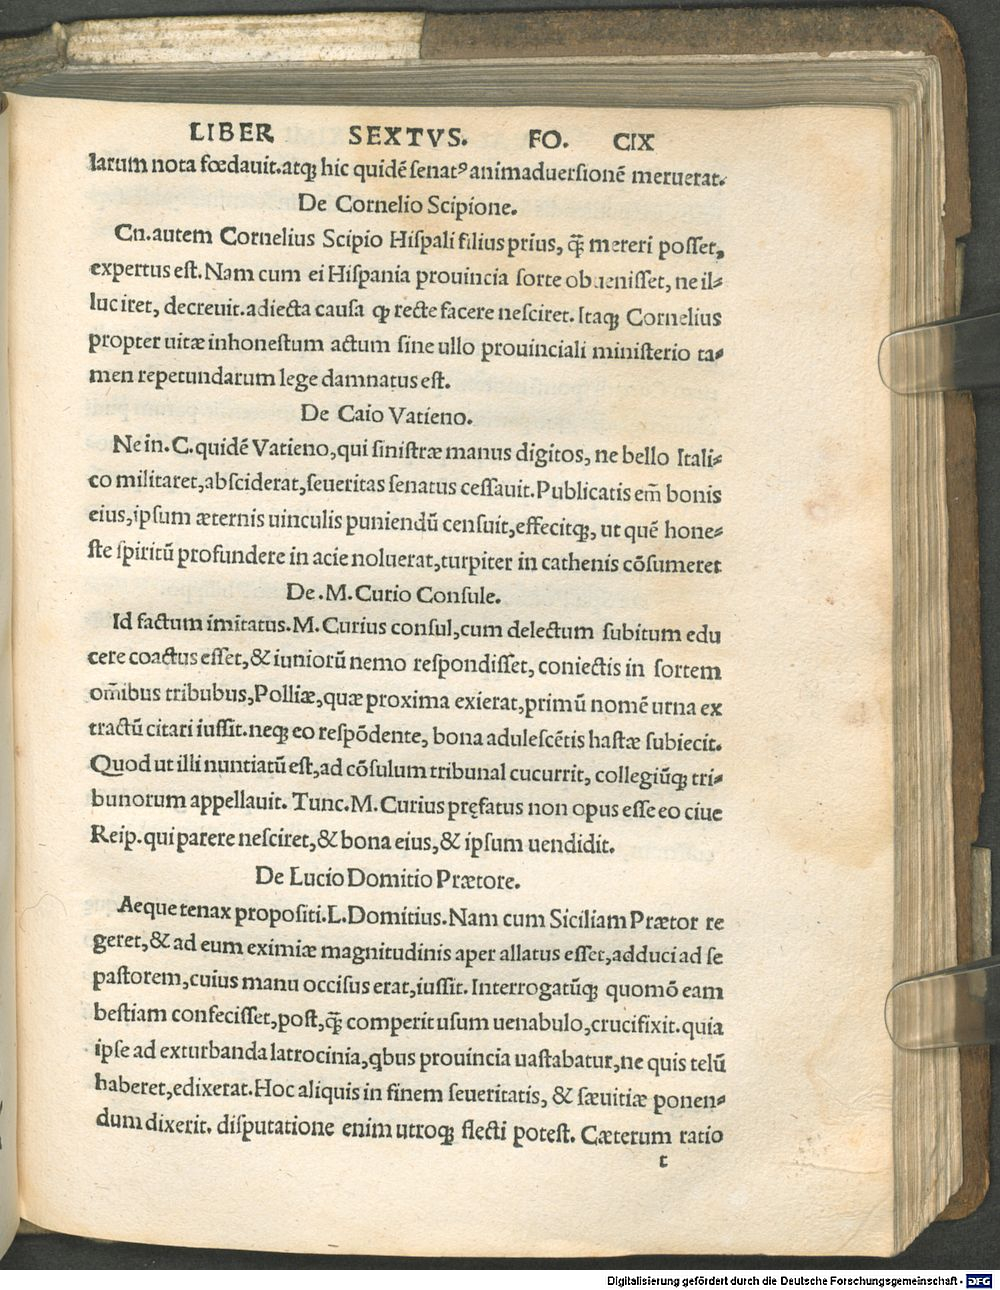 LIBER SEXTVS. FO. CIX
larum nota fœdauit.atqꝫ hic quidē ſenatꝰ animaduerſionē meruerat.
De Cornelio Scipione.
Cn.autem Cornelius Scipio Hiſpali filius prius, q̃ mereri poſſet,
expertus eſt. Nam cum ei Hiſpania prouincia ſorte obuenisſet, ne il⸗
luc iret, decreuit.adiecta cauſa ꝙ recte facere neſciret. Itaqꝫ Cornelius
propter uitæ inhoneſtum actum ſine ullo prouinciali miniſterio ta⸗
men repetundarum lege damnatus eſt.
De Caio Vatieno.
Ne in. C. quidē Vatieno, qui ſiniſtræ manus digitos, ne bello Itali⸗
co militaret,abſciderat,ſeueritas ſenatus ceſſauit. Publicatis em̄ bonis
eius,ipſum æternis uinculis puniendū cenſuit,effecitqꝫ, ut quē hone⸗
ſte ſpiritū profundere in acie noluerat,turpiter in cathenis cōſumeret
De .M. Curio Conſule.
Id factum imitatus. M. Curius conſul,cum delectum ſubitum edu
cere coactus eſſet,& iuniorū nemo reſpondiſſet, coniectis in ſortem
om̄ibus tribubus,Polliæ,quæ proxima exierat,primū nomē urna ex
tractū citari iuſſit.neqꝫ eo reſpōdente, bona aduleſcētis haſtæ ſubiecit.
Quod ut illi nuntiatū eſt,ad cōſulum tribunal cucurrit, collegiūqꝫ tri⸗
bunorum appellauit. Tunc. M. Curius pręfatus non opus eſſe eo ciue
Reip. qui parere neſciret,& bona eius,& ipſum uendidit.
De Lucio Domitio Prætore.
Aeque tenax propoſiti. L. Domitius. Nam cum Siciliam Prætor re
geret,& ad eum eximiæ magnitudinis aper allatus eſſet,adduci ad ſe
paſtorem,cuius manu occiſus erat,iuſſit. Interrogatūqꝫ quomō eam
beſtiam confeciſſet,poſt,q̃ comperit uſum uenabulo,crucifixit.quia
ipſe ad exturbanda latrocinia,qbus prouincia uaſtabatur,ne quis telū
haberet,edixerat. Hoc aliquis in finem ſeueritatis, & ſæuitiæ ponen⸗
dum dixerit. diſputatione enim utroqꝫ flecti poteſt. Cæterum ratio
t
Digitalisierung gefördert durch die Deutsche Forschungsgemeinschaft - DFG